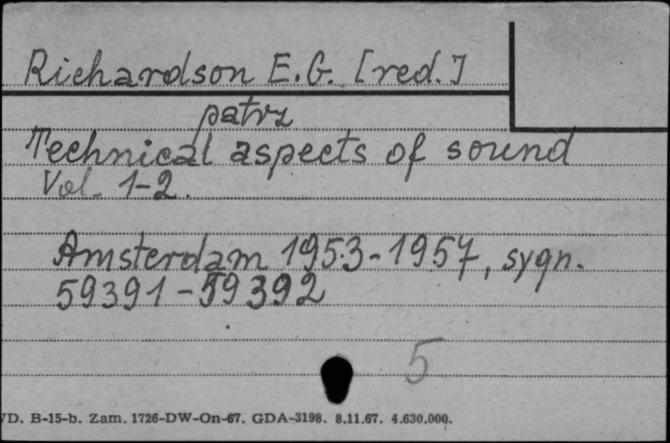 Richardson E.G. [red.]
patrz
Technical aspects of sound
Vol. 1-2.
Amsterdam 1953-1957, sygn.
59391-59392
5
D. B-15-b. Zam. 1726-DW-On-67. GDA-3198. 8.11.67. 4.630.000.